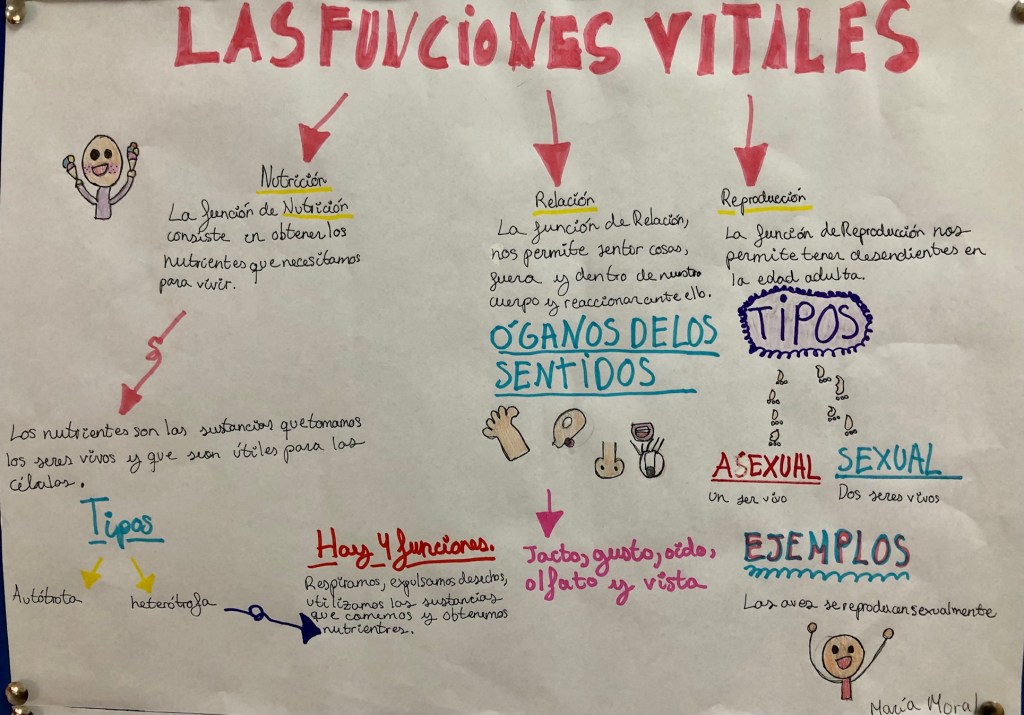 LAS FUNCIONES VITALES
Nutrición
La función de Nutrición
consiste en obtener los
nutrientes que necesitamos
para vivir.
Los nutrientes son las sustancias que tomamos
los seres vivos y que sion útiles para las
células.
Tipos
Autótrota
heterótrofa
Hay 4 funciones.
Respiramos, expulsamos desechos,
utilizamos las sustancias
que comemos y obtenemos
nutrientres.
Relación
La función de Relación,
nos permite sentir cosas,
fuera y dentro de nuestro
cuerpo y reaccionar ante ello.
ÓGANOS DE LOS
SENTIDOS
Tacto, gusto, oído,
olfato y vista
Reproducción
La función de Reproducción nos
permite tener desendientes en
la edad adulta.
TIPOS
ASEXUAL
Un ser vivo
SEXUAL
Dos seres vivos
EJEMPLOS
Las aves se reproducen sexualmente
María Moral